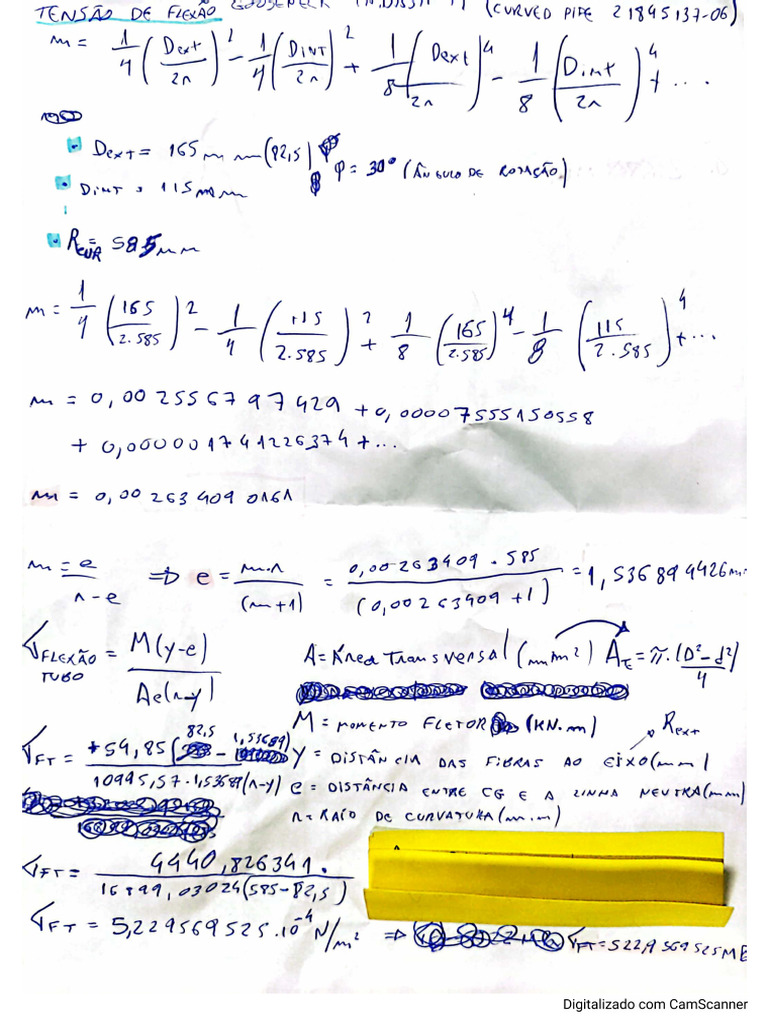 TENSÃO DE FLEXÃO GOOSENECK (CURVED PIPE 21845137-06)
m = 1/4 (Dext/2r)² - 1/4 (Dint/2r)² + 1/8 (Dext/2r)⁴ - 1/8 (Dint/2r)⁴ + ...
Dext = 165mm (82,5) φ = 30° (ÂNGULO DE ROTAÇÃO)
DINT = 115mm
RCUR = 585mm
m = 1/4 (165/2.585)² - 1/4 (115/2.585)² + 1/8 (165/2.585)⁴ - 1/8 (115/2.585)⁴ + ...
m = 0,002556797429 + 0,00007555150558
+ 0,000001741226374 + ...
m = 0,002634090161
m = e/r-e => e = m.r/(m+1) = 0,00263409 . 585/(0,00263409 + 1) = 1,536894426mm
σFLEXÃO TUBO = M(y-e)/Ae(r-y)
A = Área Transversal (mm²) AT = π.(D²-d²)/4
M = MOMENTO FLETOR (KN.m)
σFT = +54,85(82,5 - 1,53689)/10995,57.1,53689(r-y)
Y = DISTÂNCIA DAS FIBRAS AO EIXO (mm) Rext
e = DISTÂNCIA ENTRE CG E A LINHA NEUTRA (mm)
r = RAIO DE CURVATURA (mm)
σFT = 4440,826341./16899,03024(585-82,5)
σFT = 5,229569525.10⁻⁴ N/m² => σFT = 522,9569525M
Digitalizado com CamScanner